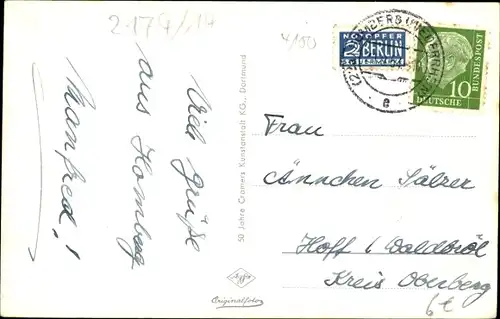 2174/14
4/50
Viele Grüße
aus Homberg
Manfred!
50 Jahre Cramers Kunstanstalt KG., Dortmund
Agfa
Originalfoto
NOTOPFER
2 BERLIN
STEUERMARKE
HOMBERG (NIEDERRHEIN)
e
10
DEUTSCHE
BUNDESPOST
Frau
Ännchen Sälzer
Hoff / Waldbröl
Kreis Oberberg
6€